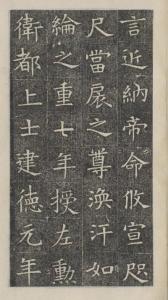 言近納帝命攸宣咫
尺當扆之尊渙汗如
綸之重七年授左勳
衛都上士建德元年